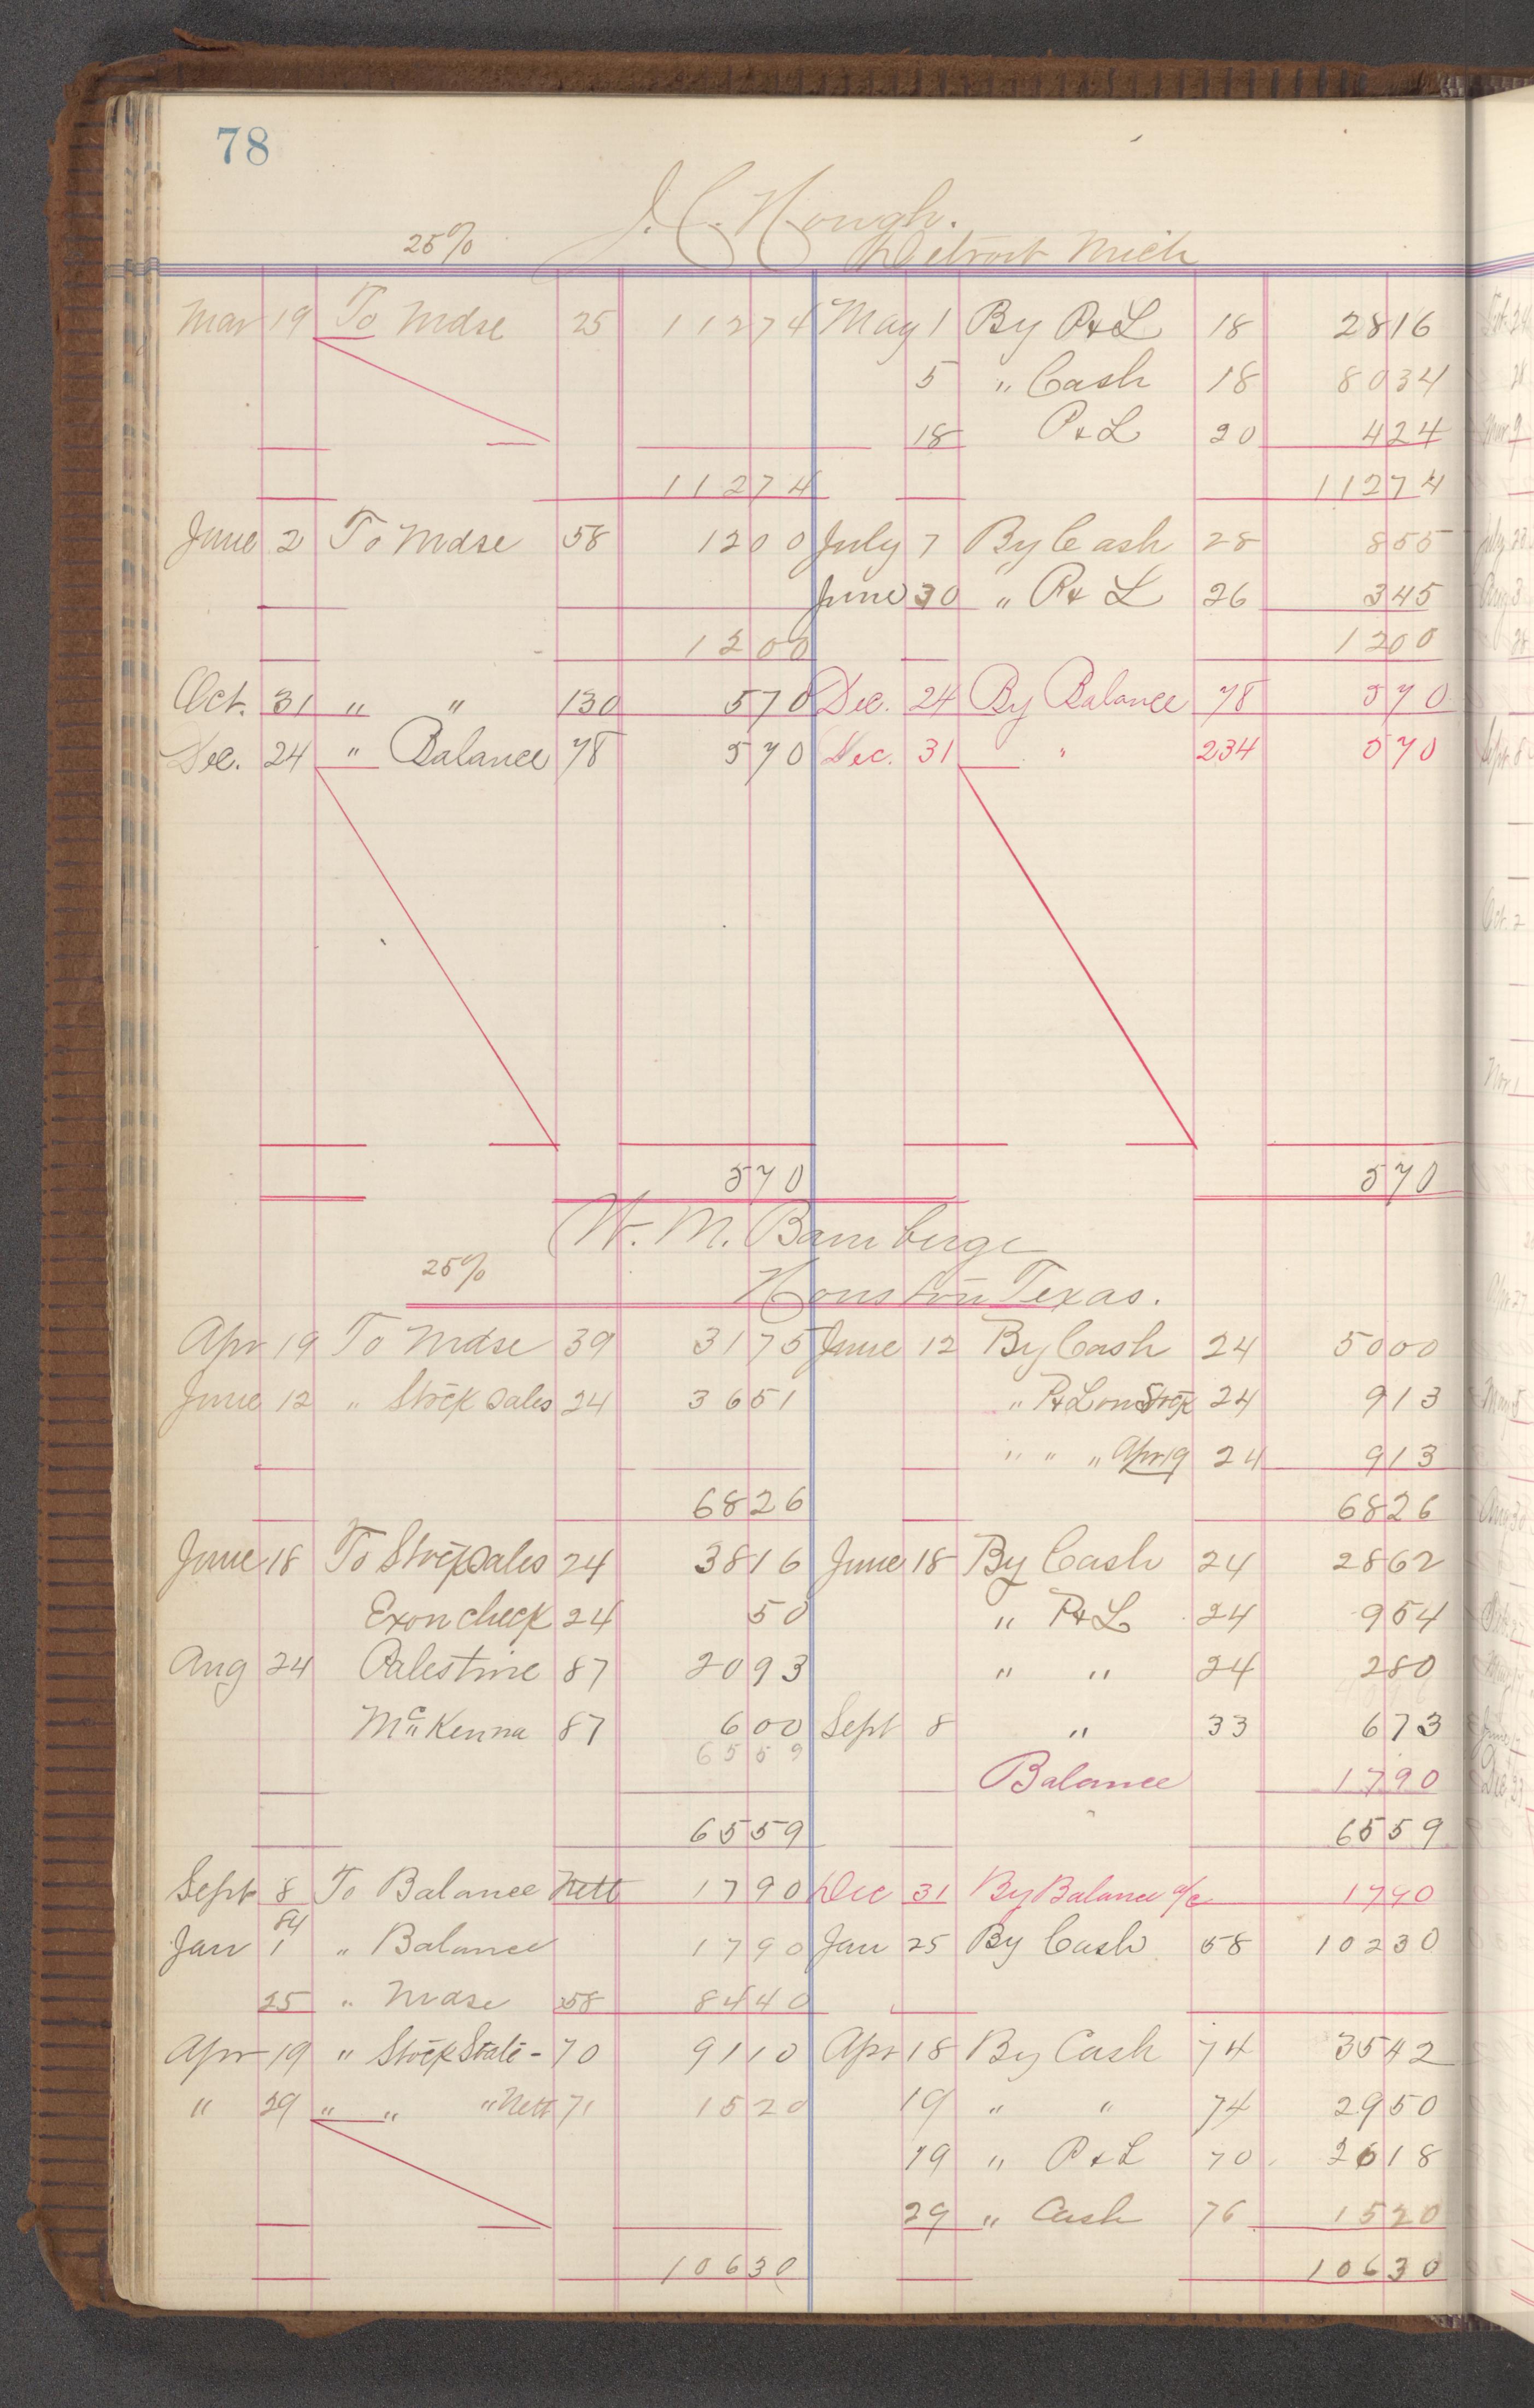 78
J. C. Hough.
25% Detroit Mich
Mar 19 To Mdse 25 112 74 May 1 By P&L 18 28 16
5 " Cash 18 80 34
18 P&L 20 4 24
112 74 112 74
June 2 To Mdse 58 12 00 July 7 By Cash 28 8 55
June 30 " P&L 26 3 45
12 00 12 00
Oct. 31 " " 130 5 70 Dec. 24 By Balance 78 5 70
Dec. 24 " Balance 78 5 70 Dec. 31 " 234 5 70
5 70 5 70
W. M. Bamberge
25% Houston Texas.
Apr 19 To Mdse 39 31 75 June 12 By Cash 24 50 00
June 12 " Stock Sales 24 36 51 " P&L on Stock 24 9 13
" " " Apr 19 24 9 13
68 26 68 26
June 18 To Stock Sales 24 38 16 June 18 By Cash 24 28 62
Ex on check 24 50 " P&L 24 9 54
Aug 24 Palestine 87 20 93 " " 24 2 80
McKenna 87 6 00 Sept 8 " 33 6 73
65 59
Balance 17 90
65 59 65 59
Sept 8 To Balance Nett 17 90 Dec 31 By Balance a/c 17 90
84
Jan 1 " Balance 17 90 Jan 25 By Cash 58 102 30
25 " Mdse 58 84 40
Apr 19 " Stock State - 70 91 10 Apr 18 By Cash 74 35 42
" 29 " " " Nett 71 15 20 19 " " 74 29 50
19 " P&L 70 26 18
29 " Cash 76 15 20
106 30 106 30